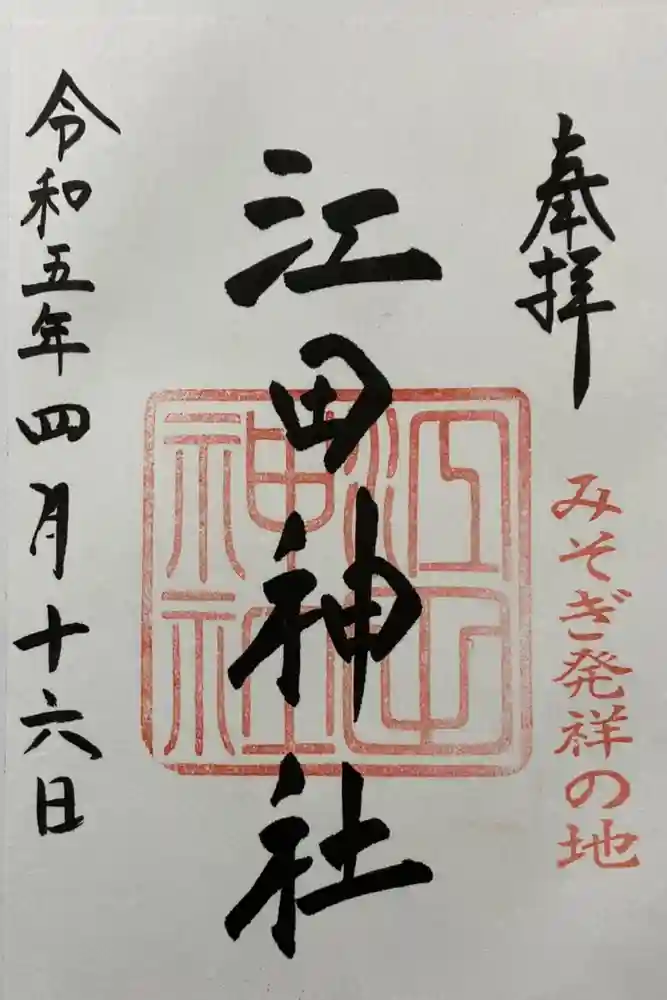 奉拝
みそぎ発祥の地
江田神社
江田
神社
令和五年四月十六日